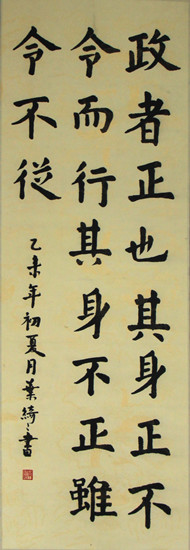 政者正也其身正不
令而行其身不正雖
令不從
乙未年初夏月葉綺〻書